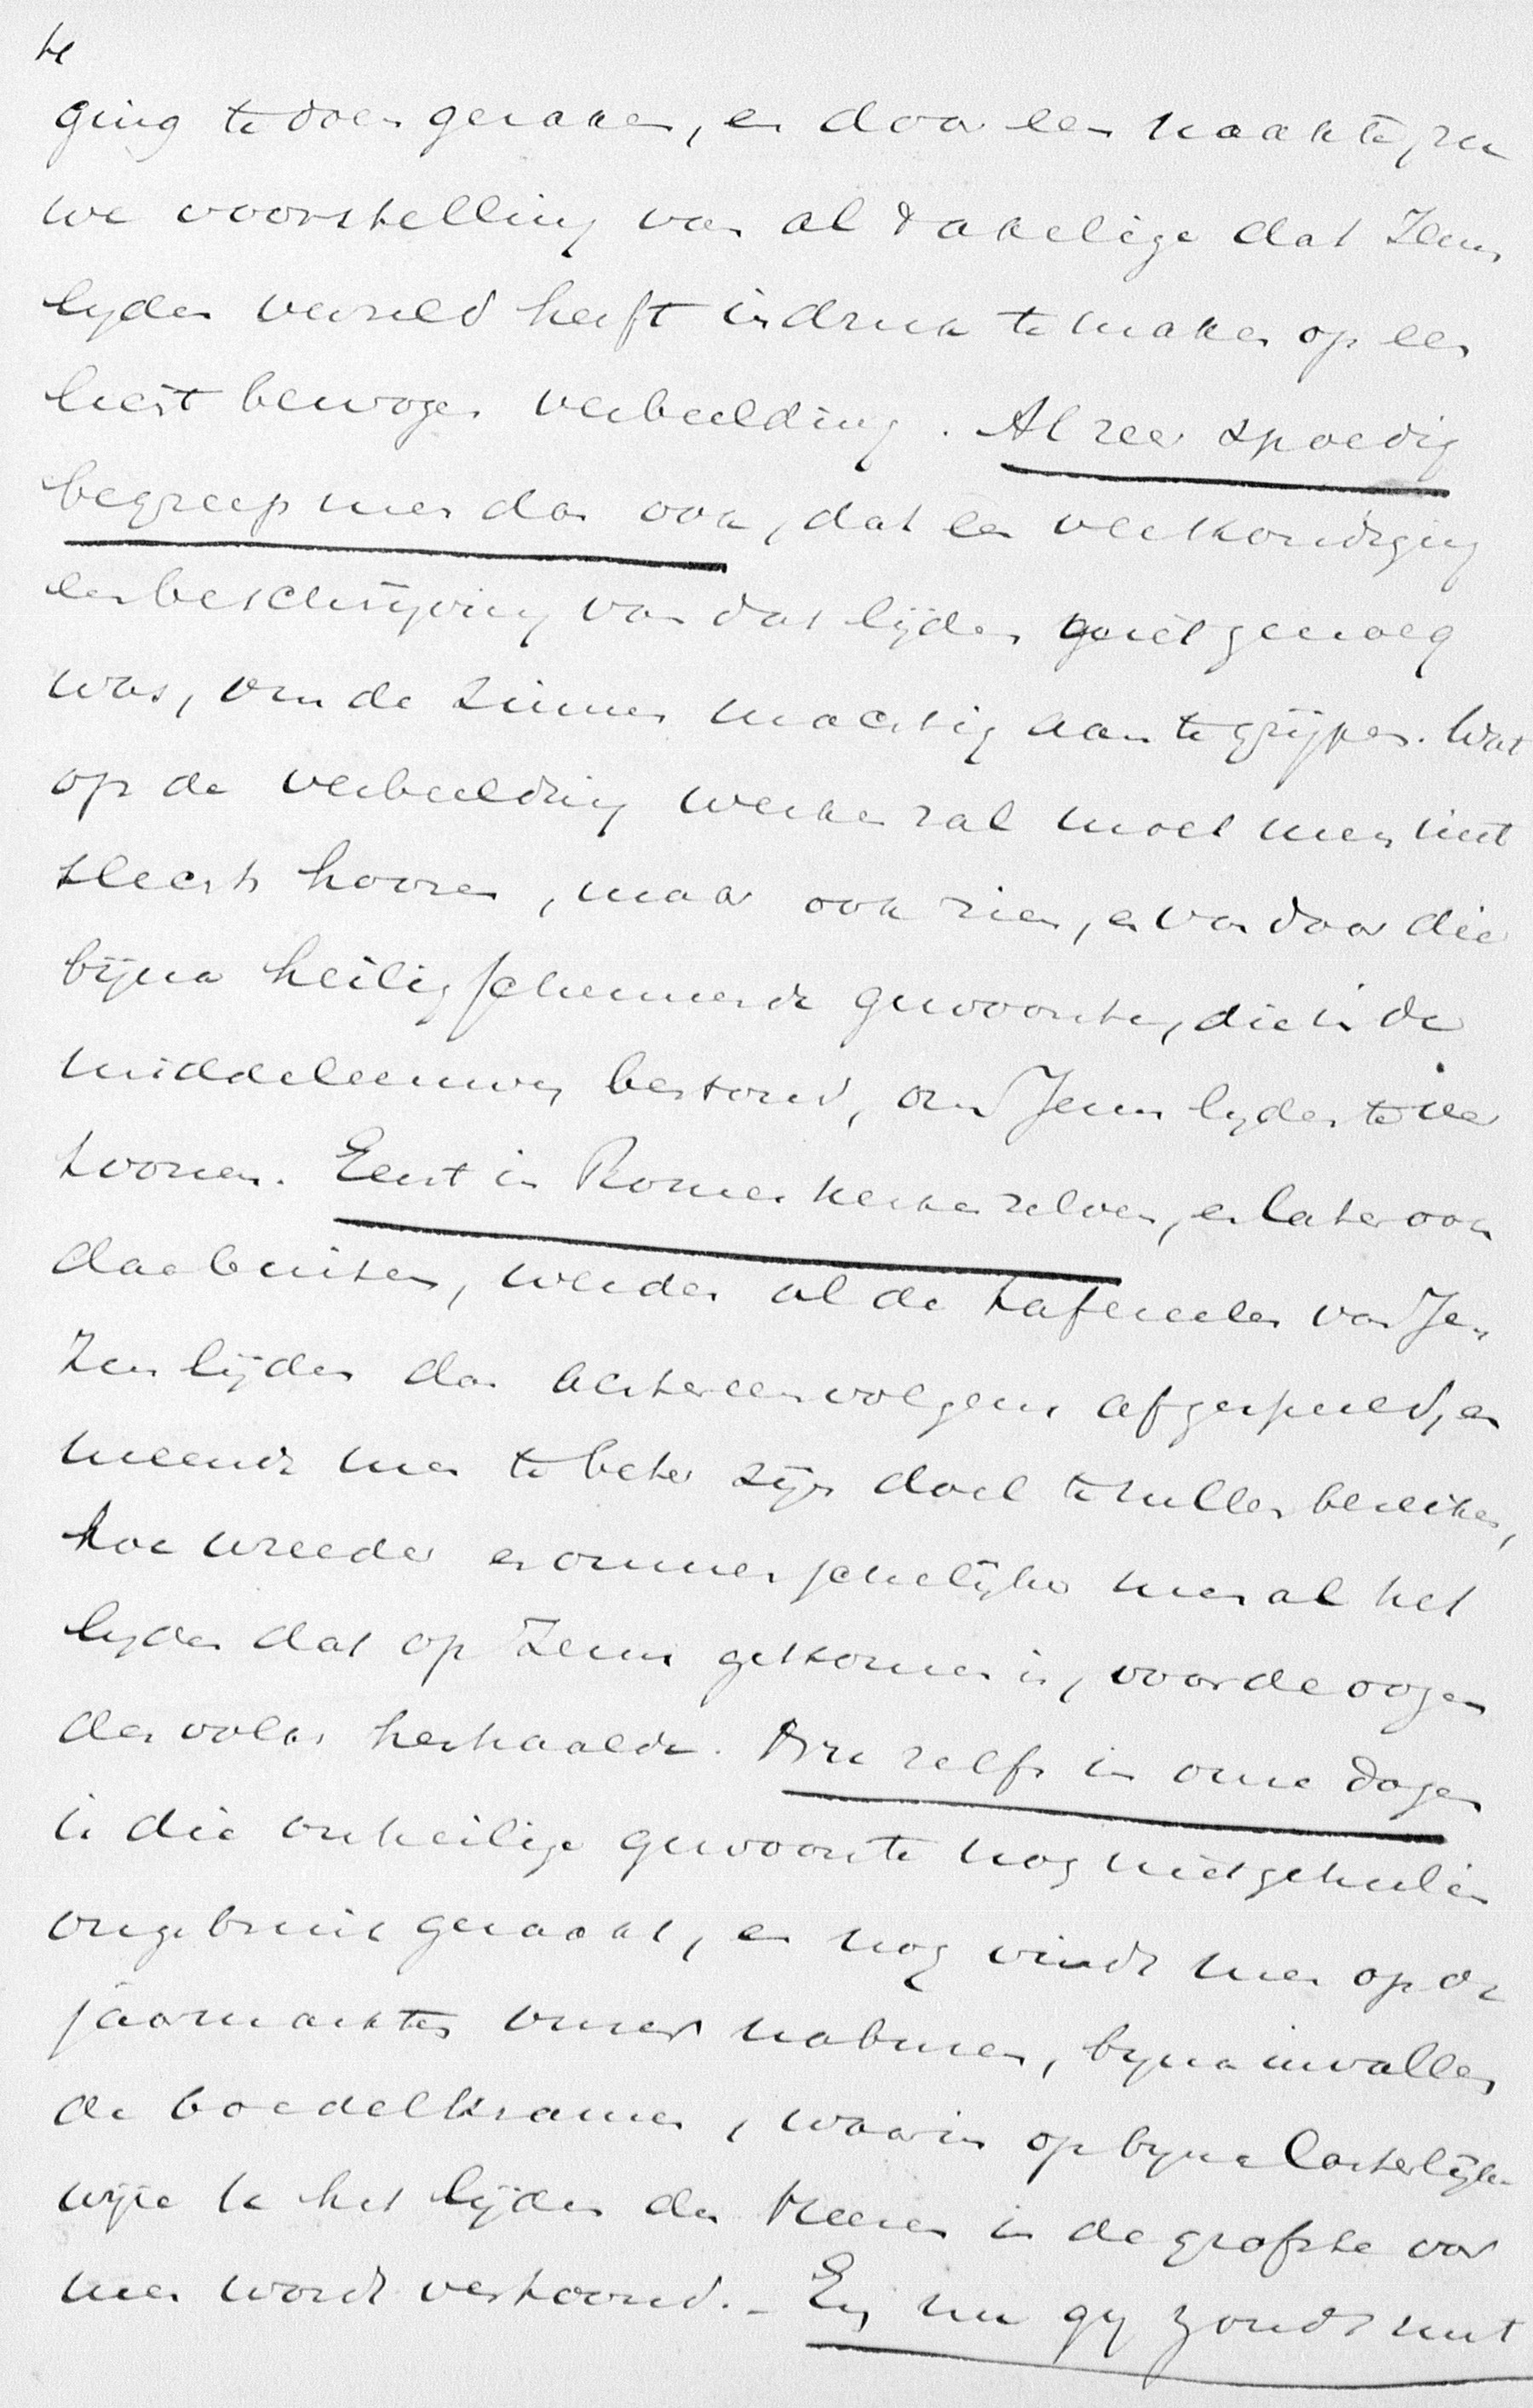 ging te doen geraken, en door een naakte, ru
we voorstelling van al 't akelige dat Jezus
lyden verzeld heeft indruk te maken op een
licht bewogen verbeelding. Al zeer spoedig
begreep men dan ook, dat een verkondiging
en beschrijving van dat lijden niet genoeg
was, om de zinnen machtig aan te grijpen. Wat
op de verbeelding werken zal moet men niet
slechts hooren, maar ook zien, en van daar die
bijna heiligschennende gewoonte, die in de
middeleeuwen bestond, om Jezus lyden te ver
toonen. Eerst in Romes kerken zelven, en later ook
daarbuiten, werden al de tafereelen van Je-
zus lijden dan achtereenvolgens afgespeeld, en
meende men te beter zijn doel te zullen bereiken,
hoe wreeder en onmenschelijker men al het
lyden dat op Jezus gekomen is, voor de oogen
des volks herhaalde. Ja zelfs in onze dagen
is die onheilige gewoonte nog niet geheel in
ongebruik geraakt, en nog vindt men op de
jaarmarkten onzer naburen, byna in allen
de boedelkramen, waarin op byna lasterlijke
wijze het lijden des Heeren in de grofste vor
men wordt vertoond. - En nu gy zoudt niet